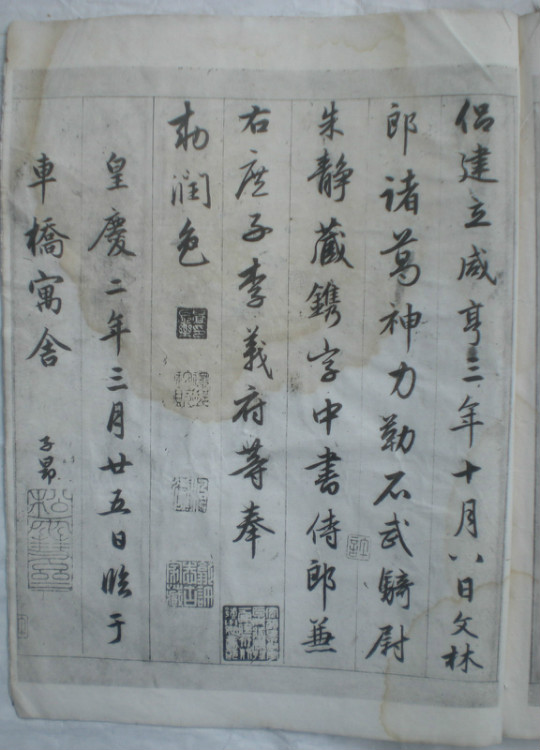 侣建立咸亨三年十月八日文林
郎諸葛神力勒石武騎尉
朱静藏鐫字中書侍郎兼
右庶子李義府等奉
勅潤色
皇慶二年三月廿五日臨于
車橋寓舍
子昂